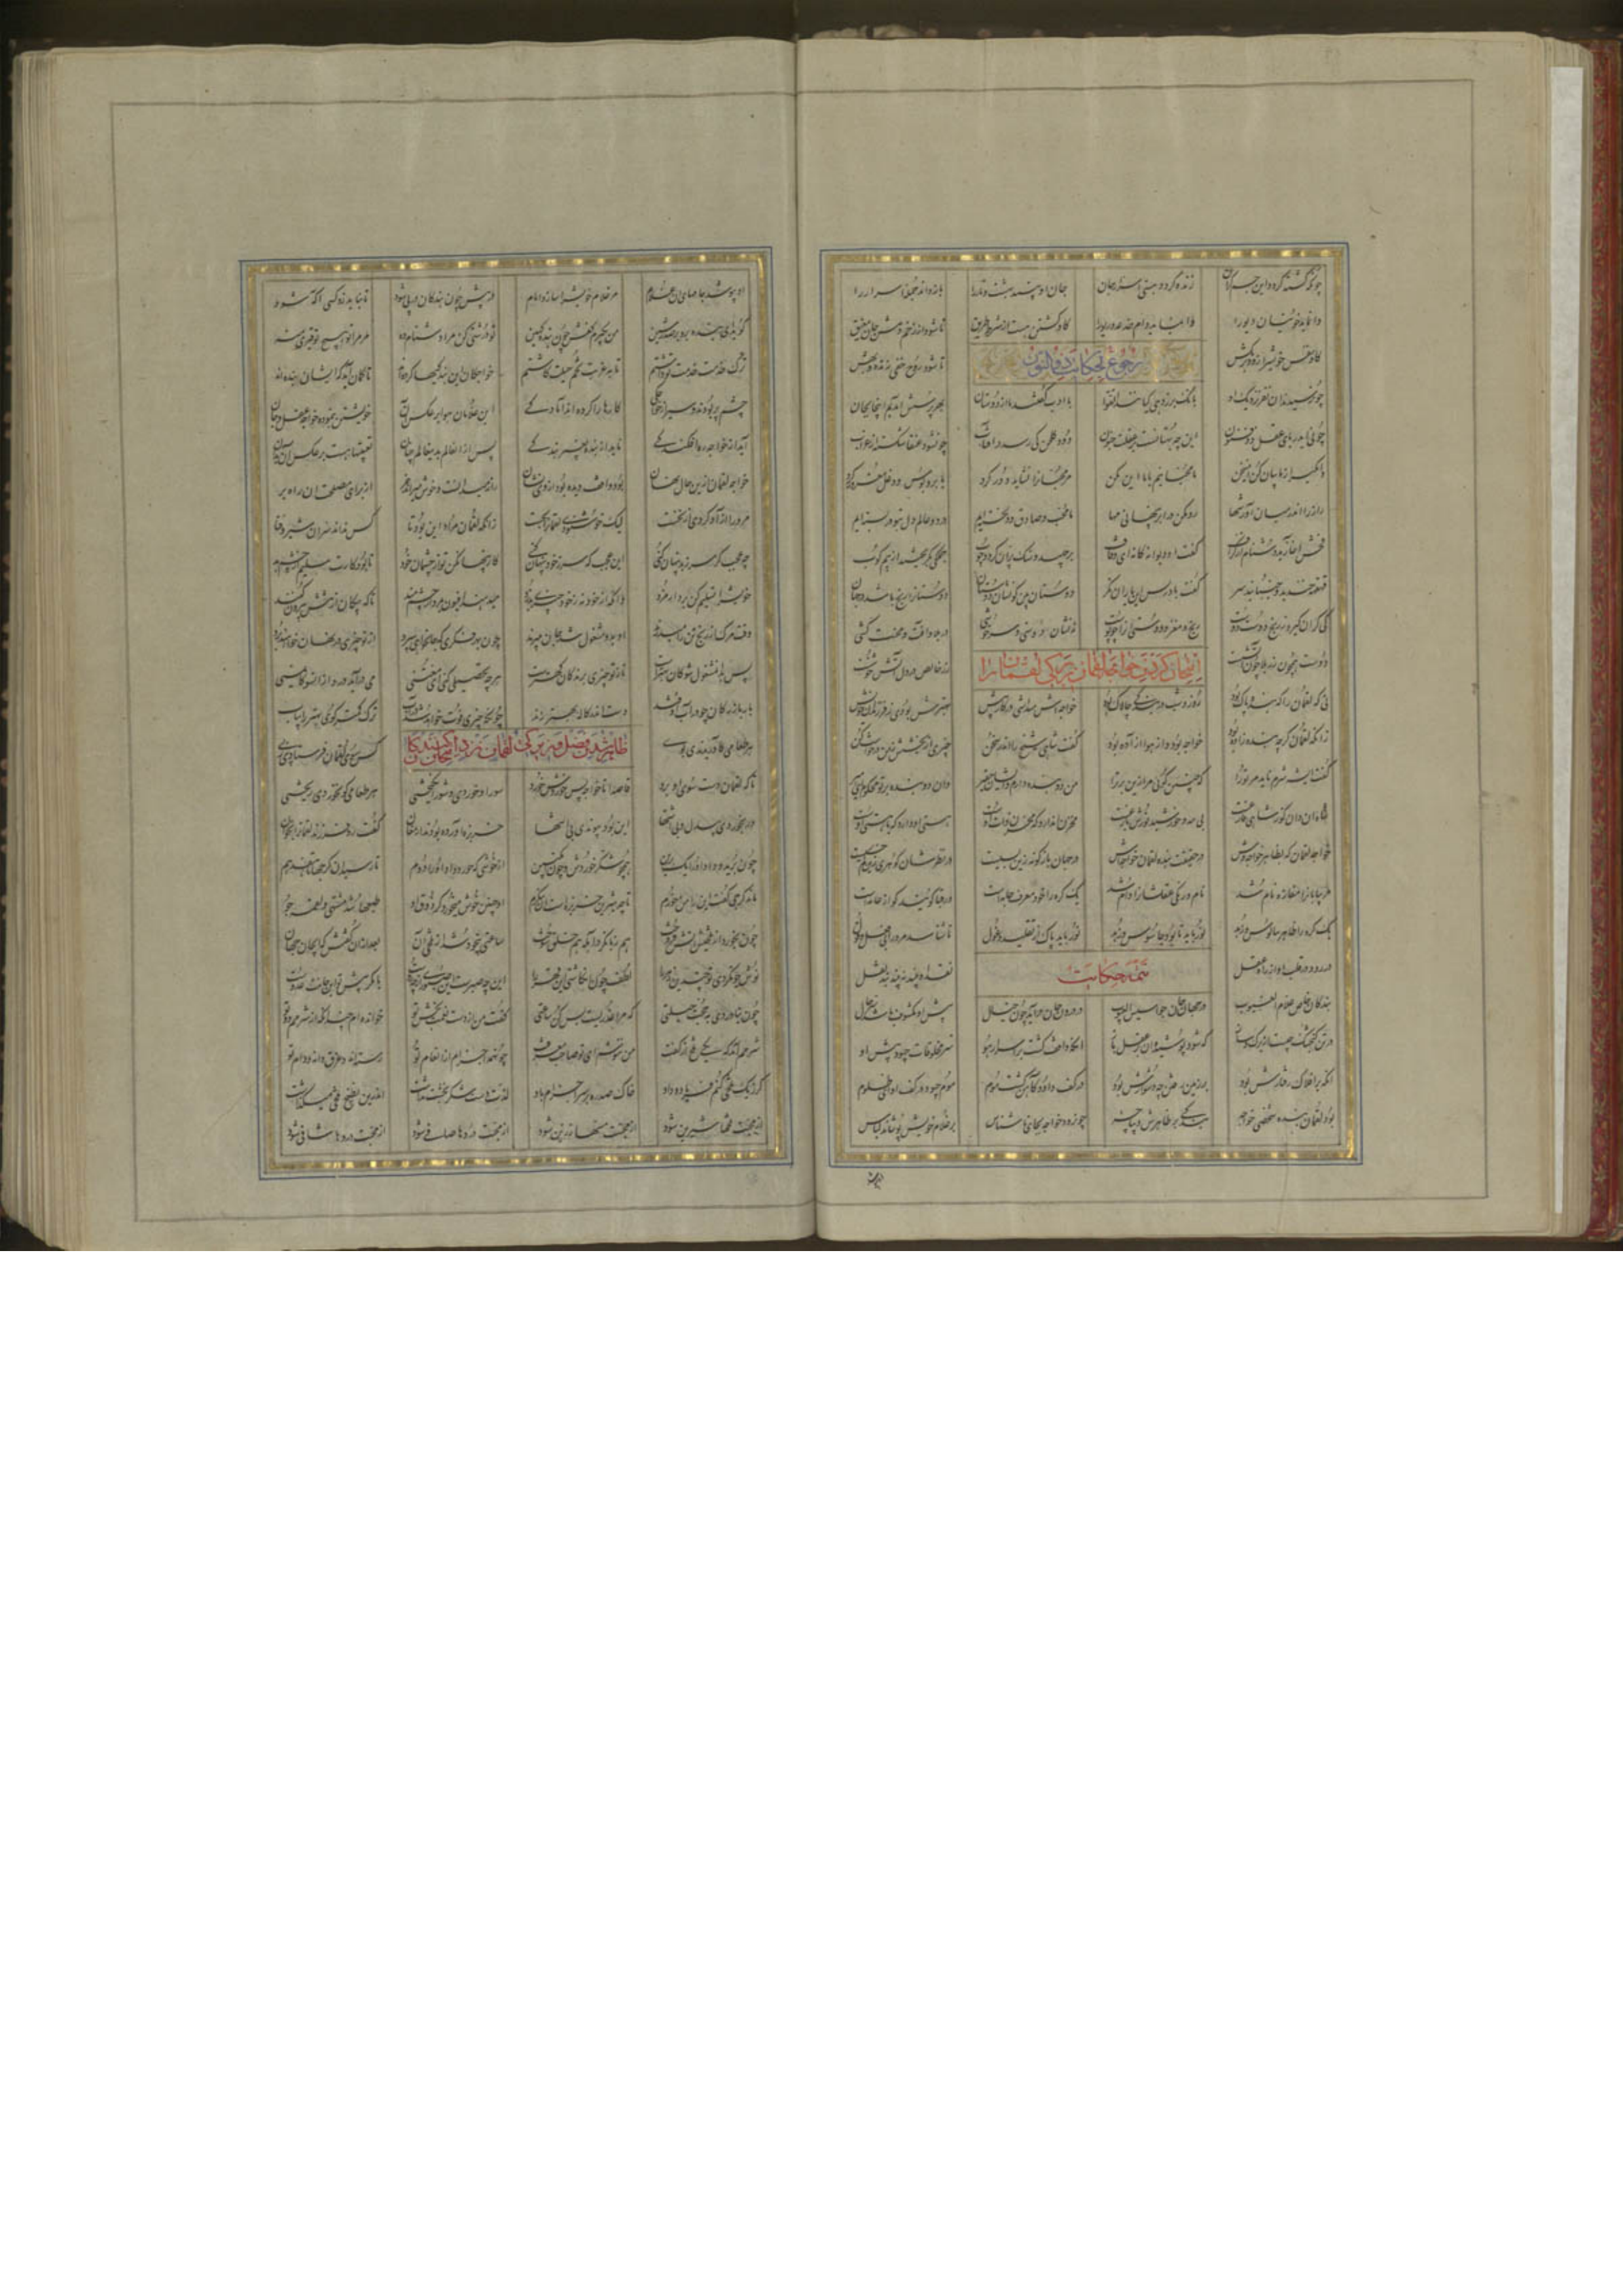 چونکه کشته گردد این جسم گران زنده گردد هستی اسرار جان جان او بیند بهشت و نار را باز داند جمله اسرار را
وا نماید خونیان دیو را وا نماید دام خدعه و ریو را گاو کشتن هست از شرط طریق تا شود از زخم دمش جان مفیق
گاو نفس خویش را زوتر بکش تا شود روح خفی زنده و بهش
رجوع بحکایت ذوالنون
چون رسیدند آن نفر نزدیک او بانگ بر زد هی کیانید اتقوا با ادب گفتند ما از دوستان بهر پرسش آمدیم اینجا بجان
چونی ای دریای عقل ذو فنون این چه بهتانست بر عقلت جنون دود گلخن کی رسد در آفتاب چون شود عنقا شکسته از غراب
وا مگیر از ما بیان کن این سخن ما محبانیم با ما این مکن مر محبانرا نشاید دور کرد یا بروپوش و دغل مغرور کرد
راز را اندر میان آور شها رو مکن در ابر پنهانی مها ما محب و صادق و دلخسته ایم در دو عالم دل بتو در بسته ایم
فحش آغازید و دشنام از گزاف گفت او دیوانگانه زی و قاف بر جهید و سنگ پران کرد و چوب جملگی بگریختند از بیم کوب
قهقهه خندید و جنبانید سر گفت باد ریش این یاران نگر دوستان بین کو نشان دوستان دوستانرا رنج باشد همچو جان
کی کران گیرد ز رنج دوست دوست رنج مغز و دوستی آنرا چو پوست نه نشان دوستی شد سرخوشی در بلا و آفت و محنت کشی
دوست همچون زر بلا چون آتشست زر خالص در دل آتش خوشست
امتحان کردن خواجه لقمان زیرکی لقمانرا
نی که لقمان را که بنده پاک بود روز و شب در بندگی چالاک بود خواجه‌اش میداشتی در کار پیش بهترش دیدی ز فرزندان خویش
زانکه لقمان گرچه بنده زاده بود خواجه بود و از هوا آزاده بود گفت شاهی شیخ را اندر سخن چیزی از بخشش ز من درخواست کن
گفت ای شه شرم ناید مر تو را که چنین گویی مرا زین برتر آ من دو بنده دارم و ایشان حقیر وان دو بنده بر تو حکام و امیر
شاه آن دان کو ز شاهی فارغست بی مه و خورشید نورش بازغست مخزن آن دارد که مخزن ذات اوست هستی او دارد که با هستی عدوست
خواجه لقمان بظاهر خواجه وش در حقیقت بنده لقمان خواجه اش در جهان بازگونه زین بسیست در نظرشان گوهری کم از خسیست
مر بیابانرا مفازه نام شد نام و رنگی عقلشانرا دام شد یک گره را خود معرف جامه است در قبا گویند کو از عامه است
یک گره را ظاهر سالوس زهد نور باید تا بود جاسوس زهد نور باید پاک از تقلید و غول تا شناسد مرد را بی فعل و قول
در رود در قلب او از راه عقل نقد او بیند نباشد بند نقل
تتمه حکایت
بندگان خاص علام الغیوب در جهان جان جواسیس القلوب در درون دل در آید چون خیال پیش او مکشوف باشد سر حال
در تن گنجشک چیست از برگ و ساز که شود پوشیده آن بر عقل باز آنکه واقف گشت بر اسرار هو سر مخلوقات چبود پیش او
آنکه بر افلاک رفتارش بود بر زمین رفتن چه دشوارش بود در کف داود کاهن گشت موم موم چبود در کف او ای ظلوم
بود لقمان بنده شکلی خواجه بندگی بر ظاهرش دیباچه چون رود خواجه بجای ناشناس بر غلام خویش پوشاند لباس
او بپوشد جامهای آن غلام مر غلام خویش را سازد امام در پیش چون بندگان در ره شود تا نباید زو کسی آگه شود
گوید ای بنده تو رو بر صدر شین من بگیرم کفش چون بنده کهین تو درشتی کن مرا دشنام ده مر مرا تو هیچ توقیری منه
ترک خدمت خدمت تو داشتم تا بغربت تخم حیلت کاشتم خواجگان این بندگیها کرده اند تا گمان آید که ایشان بنده اند
چشم پر بودند و سیر از خواجگی کارها را کرده اند آمادگی این غلامان هوا بر عکس آن خویشتن بنموده خواجه عقل و جان
آید از خواجه ره افکندگی ناید از بنده بغیر بندگی پس از آن عالم بدین عالم چنان تعبیتها هست بر عکس این بدان
خواجه لقمان ازین حال نهان بود واقف دیده بود از وی نشان راز میدانست و خوش میراند خر از برای مصلحت آن راه بر
مر ورا آزاد کردی از نخست لیک خشنودی لقمانرا بجست زانکه لقمانرا مراد این بود تا کس نداند سر آن شیر و فتا
چه عجب که سر ز بد پنهان کنی این عجب که سر ز خود پنهان کنی کار پنهان کن تو از چشمان خود تا بود کارت سلیم از چشم بد
خویش را تسلیم کن بر دام مزد وانگه از خود بی ز خود چیزی بدزد میدهند افیون بمرد زخم مند تا که پیکان از تنش بیرون کنند
وقت مرگ از رنج او را میدرند او بدان مشغول شد جان میبرند چون بهر فکری که دل خواهی سپرد از تو چیزی در نهان خواهند برد
پس بدان مشغول شو کان بهترست تا ز تو چیزی برد کان کهترست هر چه تحصیلی کنی ای معتنی می در آید دزد از آنسو کایمنی
بار بازرگان چو در آب اوفتد دست اندر کاله بهتر زند چونکه چیزی فوت خواهد شد در آب ترک کمتر گوی و بهتر را بیاب
ظاهر شدن فضل و زیرکی لقمان نزد امتحان کنندگان
هر طعامی کاوریدندی بوی کس سوی لقمان فرستادی ز پی
تا که لقمان دست سوی آن برد قاصدا تا خواجه پس خوردش خورد سور او خوردی و شور انگیختی هر طعامی کو نخوردی ریختی
ور بخوردی بی دل و بی اشتها این بود پیوندی بی انتها خربزه آورده بودند ارمغان گفت رو فرزند لقمانرا بخوان
چون برید و داد او را یک برین همچو شکر خوردش و چون انگبین از خوشی که خورد داد او را دوم تا رسید آن کرچها تا هفدهم
ماند کرچی گفت این را من خورم تا چه شیرین خربزه است این بنگرم او چنین خوش میخورد کز ذوق او طبعها شد مشتهی و لقمه جو
چون بخورد از تلخیش آتش فروخت هم زبان کرد آبله هم حلق سوخت ساعتی بیخود شد از تلخی آن بعد از آن گفتش که ای جان جهان
نوش چون کردی تو چندین زهر را لطف چون انگاشتی این قهر را این چه صبرست این صبوری از چه روست یا مگر پیش تو این جانت عدوست
چون نیاوردی بحیلت حجتی که مرا عذریست بس کن ساعتی گفت من از دست نعمت بخش تو خورده ام چندانکه از شرمم دوتو
شرمم آمد که یکی تلخ از کفت من ننوشم ای تو صاحب معرفت چون همه اجزام از انعام تو رسته اند و غرق دانه و دام تو
گر ز یک تلخی کنم فریاد و داد خاک صد ره بر سر اجزام باد لذت دست شکر بخشت بداشت اندرین بطیخ تلخی کی گذاشت
از محبت تلخها شیرین شود از محبت مسها زرین شود از محبت دردها صافی شود از محبت دردها شافی شود